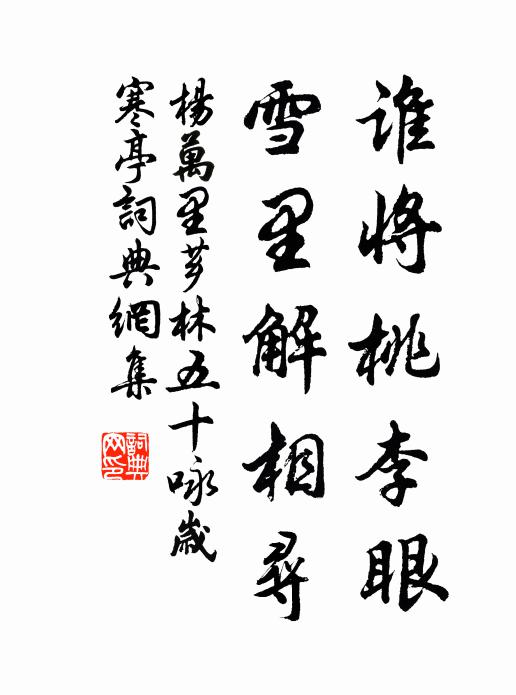 谁将桃李眼
雪里解相尋
楊萬里芗林五十咏歲
寒亭詞典網集
詞典
网印